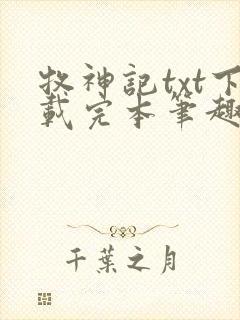 牧神記txt下
載完本筆趣
千葉之月